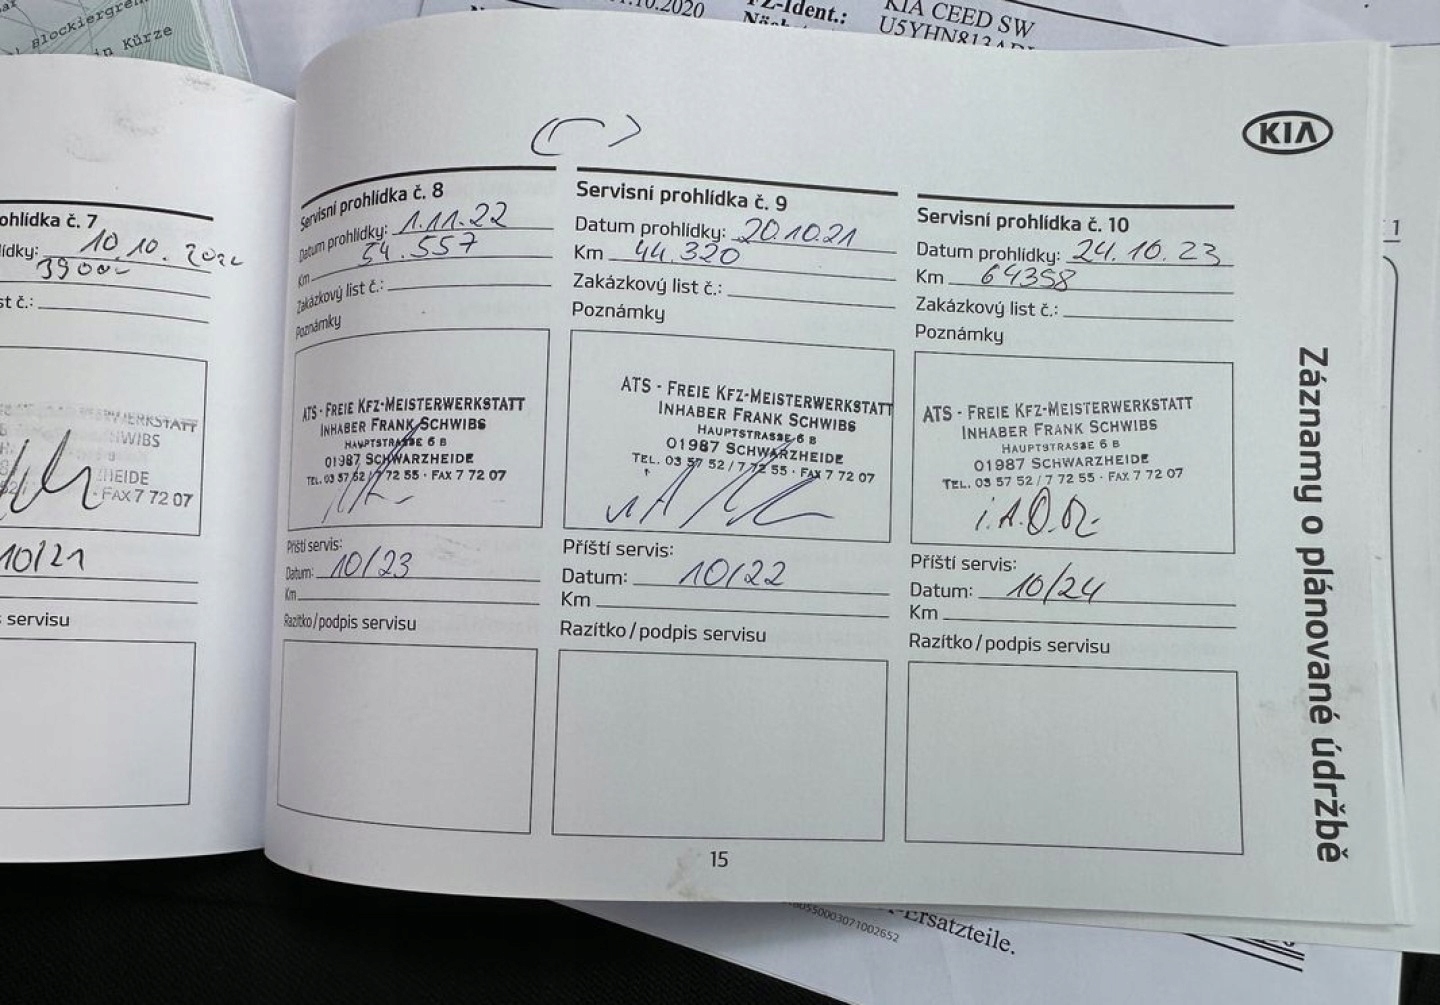 Blockiergren
in Kürze
.10.2020
Z-Ident.:
KIA CEED SW
KIA
ohlídka č. 7
lídky: 10.10.
st č.:
NHWIBS
HEIDE
· FAX 7 72 07
10/21
servisu
Servisní prohlídka č. 8
Datum prohlídky: 1.11.22
Km 54.557
Zakázkový list č.:
Poznámky
ATS - FREIE KFZ-MEISTERWERKSTATT
INHABER FRANK SCHWIBS
HAUPTSTRASSE 6 B
01987 SCHWARZHEIDE
TEL. 03 57 52 / 7 72 55 · FAX 7 72 07
Příští servis:
Datum: 10/23
Km
Razítko/podpis servisu
Servisní prohlídka č. 9
Datum prohlídky: 20.10.21
Km 44.320
Zakázkový list č.:
Poznámky
ATS - FREIE KFZ-MEISTERWERKSTATT
INHABER FRANK SCHWIBS
HAUPTSTRASSE 6 B
01987 SCHWARZHEIDE
TEL. 03 57 52 / 7 72 55 · FAX 7 72 07
Příští servis:
Datum: 10/22
Km
Razítko/podpis servisu
Servisní prohlídka č. 10
Datum prohlídky: 24.10.23
Km 64358
Zakázkový list č.:
Poznámky
ATS - FREIE KFZ-MEISTERWERKSTATT
INHABER FRANK SCHWIBS
HAUPTSTRASSE 6 B
01987 SCHWARZHEIDE
TEL. 03 57 52 / 7 72 55 · FAX 7 72 07
Příští servis:
Datum: 10/24
Km
Razítko/podpis servisu
Záznamy o plánované údržbě
1
15
-Ersatzteile.